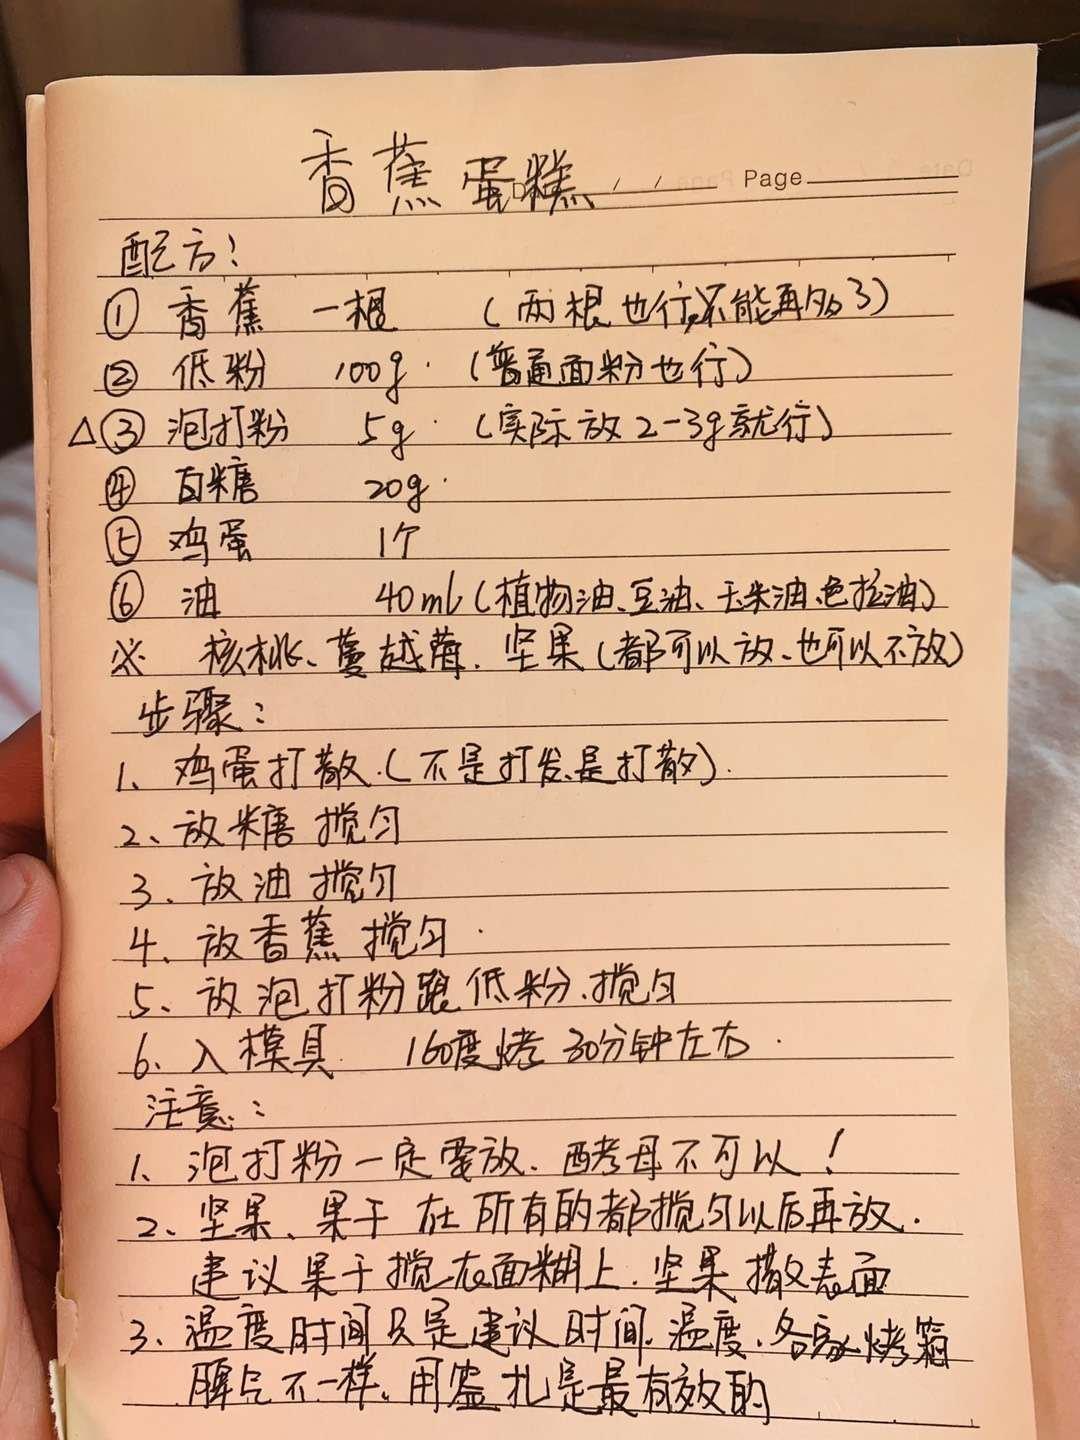 香蕉蛋糕 / / Page
配方:
① 香蕉 一根 (两根也行,不能再多了)
② 低粉 100g. (普通面粉也行)
△③ 泡打粉 5g. (实际放2-3g就行)
④ 白糖 20g.
⑤ 鸡蛋 1个
⑥ 油 40ml(植物油、豆油、玉米油、色拉油)
※ 核桃、蔓越莓、坚果(都可以放、也可以不放)
步骤:
1、鸡蛋打散.(不是打发、是打散).
2、放糖 搅匀
3、放油 搅匀
4、放香蕉 搅匀.
5、放泡打粉跟低粉、搅匀
6、入模具 160度烤 30分钟左右.
注意:
1、泡打粉一定要放、酵母不可以!
2、坚果、果干在所有的都搅匀以后再放.
建议果干搅在面糊上、坚果撒表面
3、温度时间只是建议时间、温度、各家烤箱
脾气不一样、用签扎是最有效的